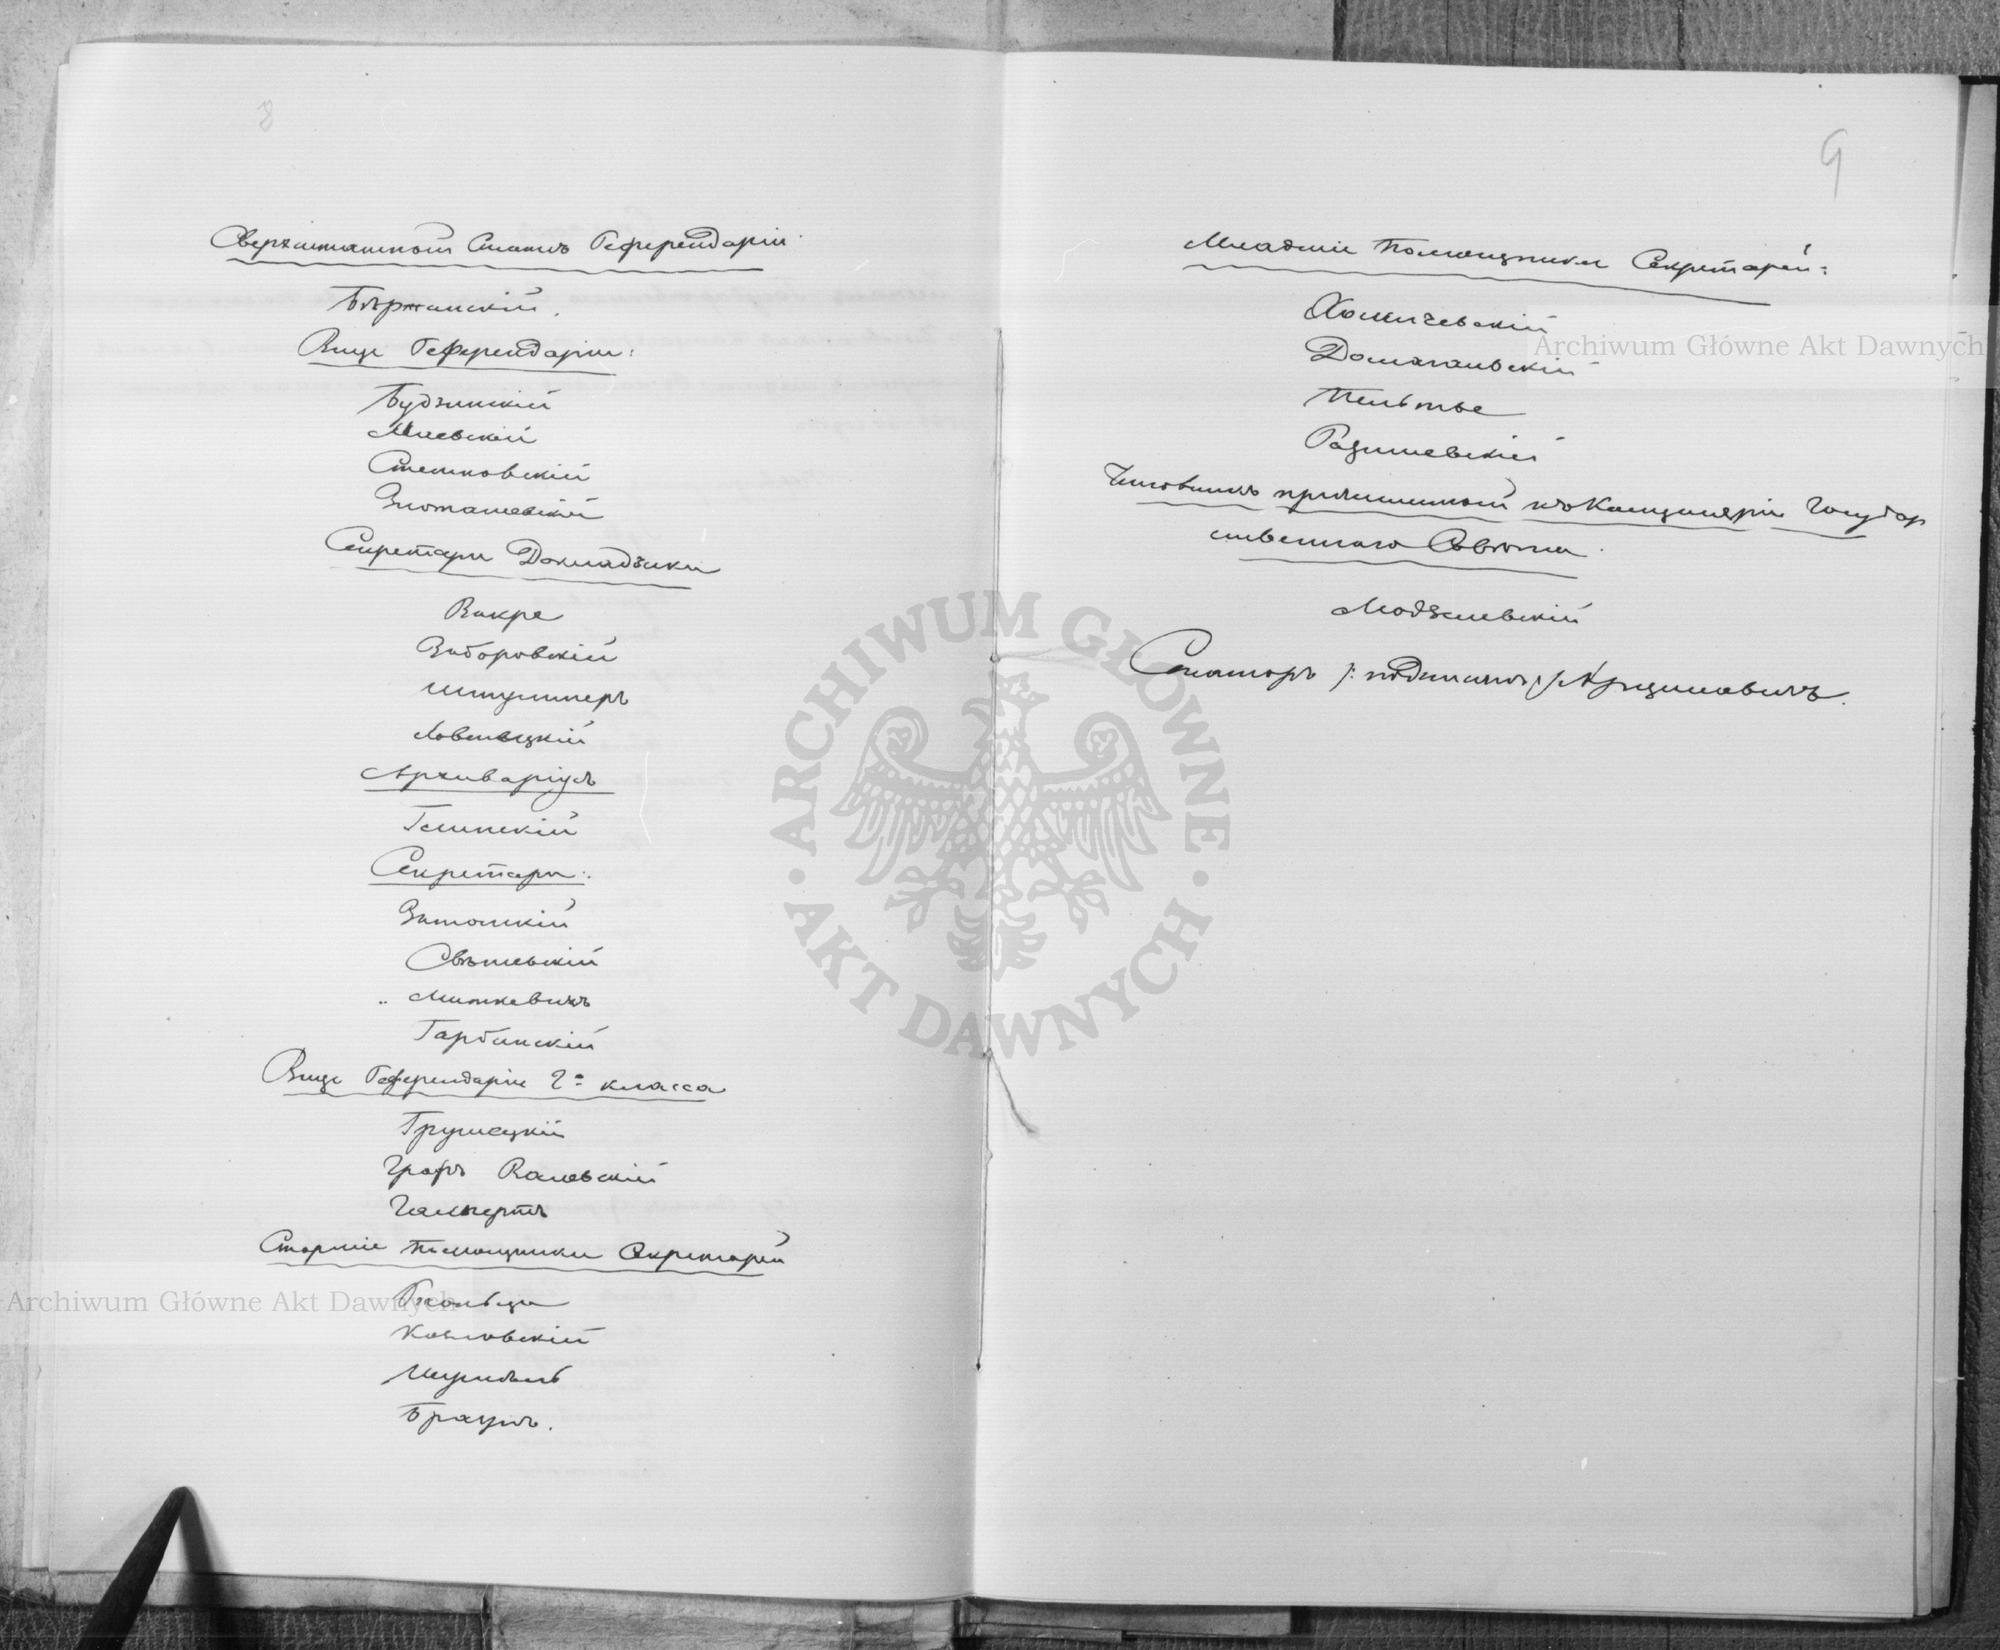 8
Сверхштатный Статсъ Референдарій
Бѣржанскій.
Вице Референдаріи:
Будзинскій
Маевскій
Стешковскій
Секретари Докладчики
Вакре
Заборовскій
Штуммеръ
Архиваріусъ
Глинскій
Секретари:
Затонскій
Свѣшевскій
Миткевичъ
Гарбинскій
Вице Референдаріи 2º класса
Грушецкій
Графъ Валевскій
Гальпертъ
Старшіе Помощники Секретарей
Козловскій
Браунъ.
9
Младшіе Помощники Секретарей:
Хомичевскій
Домагальскій
Пельтье
Радишевскій
Чиновникъ причисленный къ Канцеляріи Государ
ственнаго Совѣта.
Модзелевскій
Сенаторъ /: подписалъ :/ Арцимовичъ.
Archiwum Główne Akt Dawnych
Archiwum Główne Akt Dawnych
ARCHIWUM GŁÓWNE AKT DAWNYCH